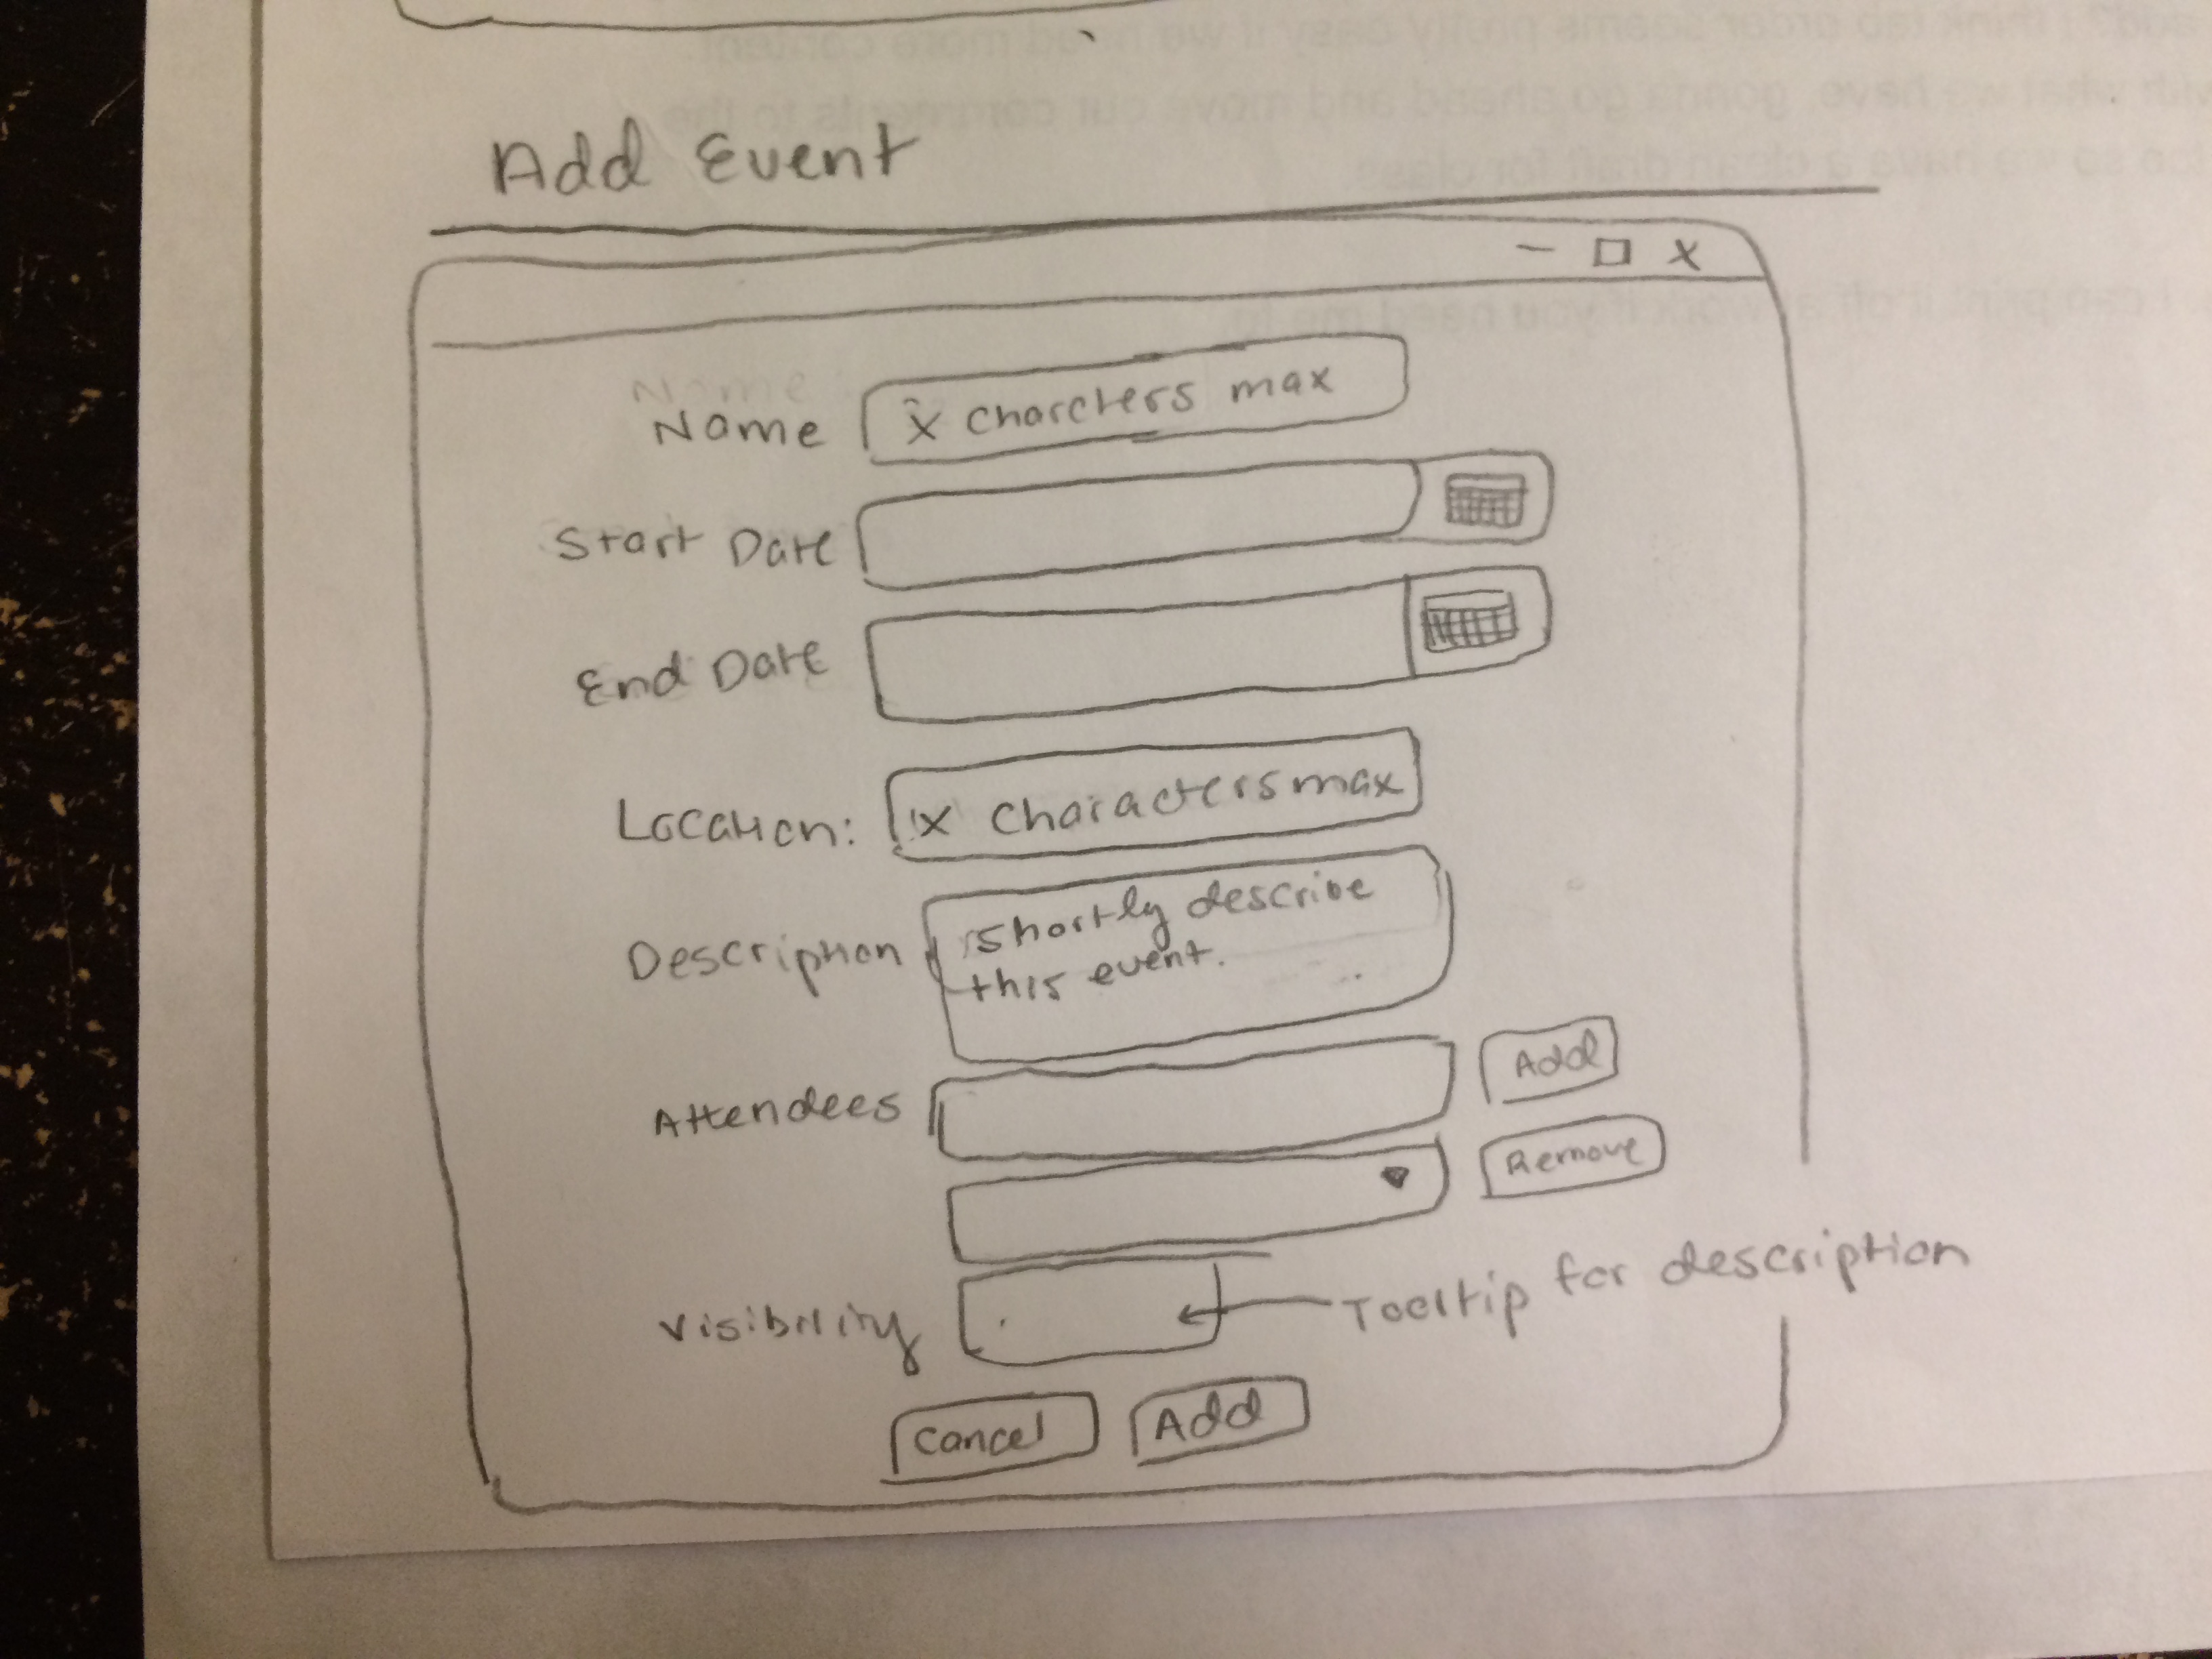 Add Event
- □ X
Name X charcters max
Start Date
End Date
Location: X characters max
Description shortly describe
this event.
Attendees Add
Remove
Visibility
Tooltip for description
Cancel Add